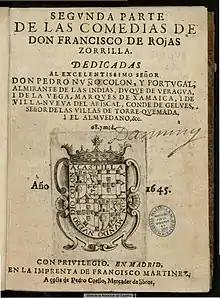 SEGVNDA PARTE
DE LAS COMEDIAS DE
DON FRANCISCO DE ROJAS
ZORRILLA.
DEDICADAS
AL EXCELENTISSIMO SEÑOR
DON PEDRO NVÑO COLON, Y PORTVGAL,
ALMIRANTE DE LAS INDIAS, DVQVE DE VERAGVA,
I DE LA VEGA, MARQVES DE XAMAICA, I DE
VILLA-NVEVA DEL ARISCAL, CONDE DE GELVES,
SEÑOR DE LAS VILLAS DE TORRE-QVEMADA,
I EL ALMVEDANO, &c.
Año
1645.
CON PRIVILEGIO. EN MADRID.
EN LA IMPRENTA DE FRANCISCO MARTINEZ,
A costa de Pedro Coello, Mercader de libros,